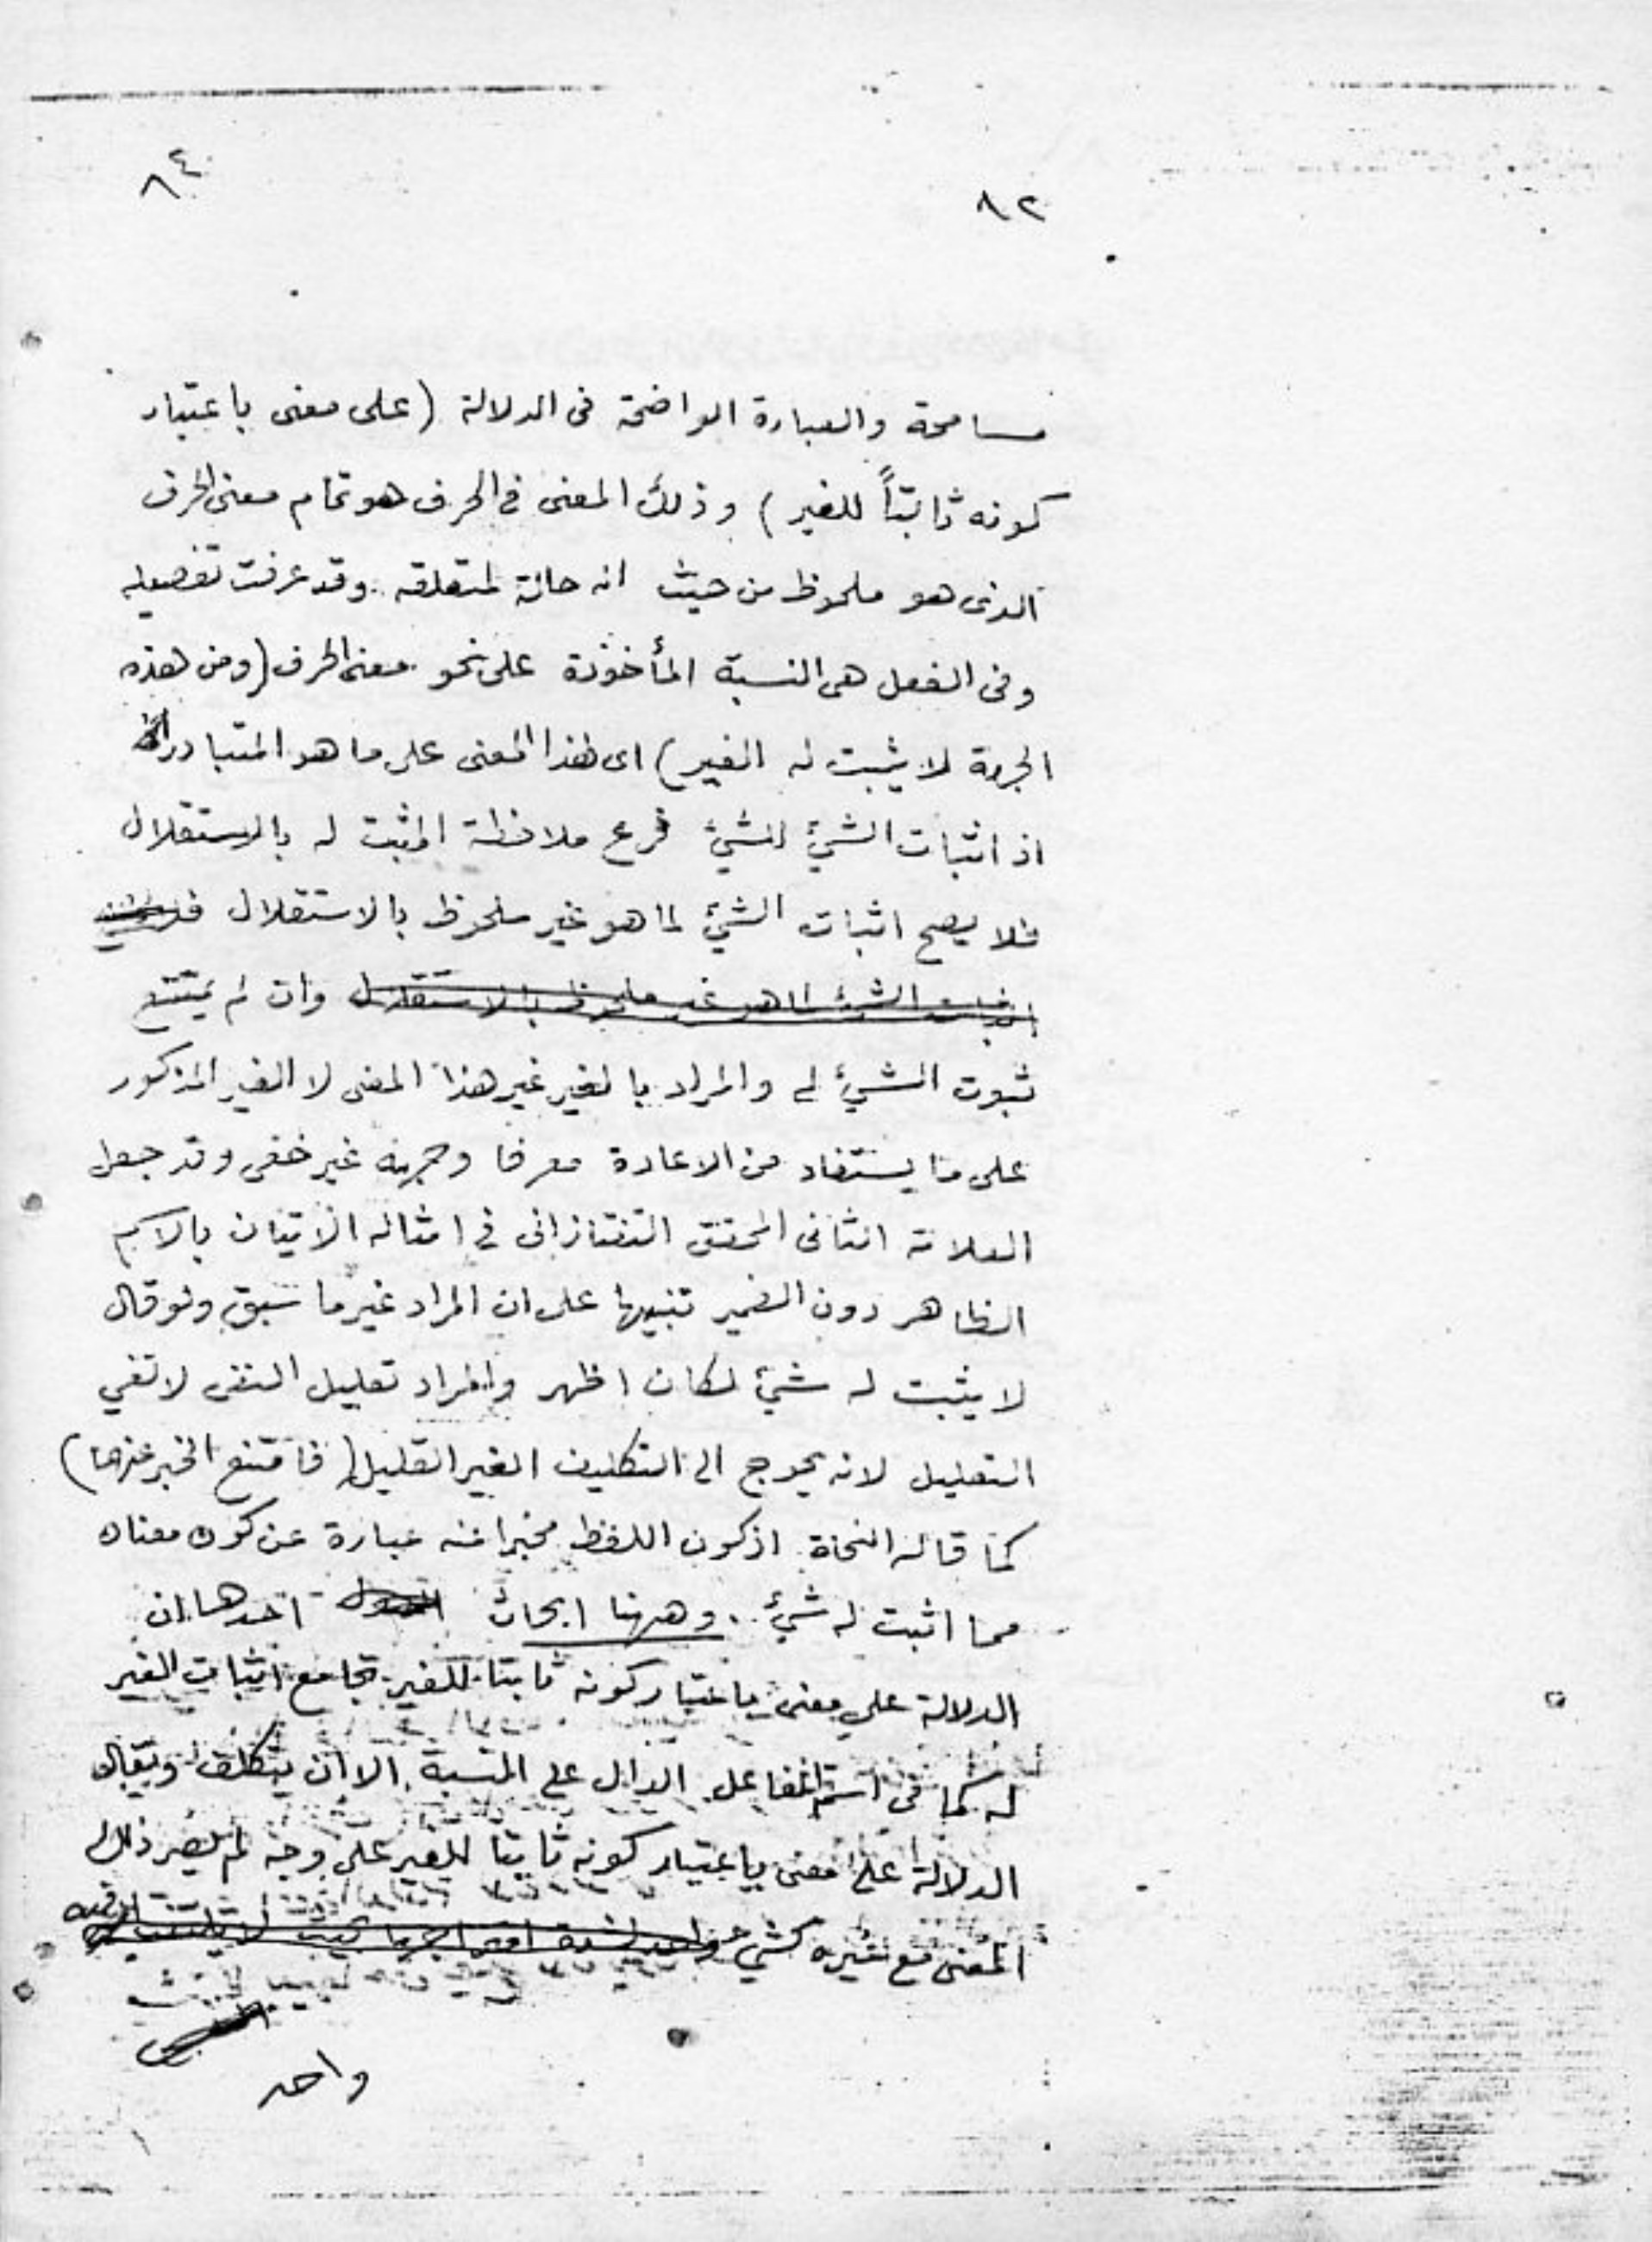 ٨٤
٨٢
مسامحة والعبارة الواضحة فى الدلالة (على معنى باعتبار
كونه ثابتاً للغير) وذلك المعنى في الحرف هو تمام معنى الحرف
الذى هو ملحوظ من حيث انه حالة لمتعلقه وقد عرفت تفصيله
وفى الفعل هى النسبة المأخوذة على نحو معنى الحرف (ومن هذه
الجهة لا يثبت له الغير) اى لهذا المعنى على ما هو المتبادر
اذ اثبات الشيئ للشيئ فرع ملاحظة المثبت له بالاستقلال
فلا يصح اثبات الشيئ لما هو غير ملحوظ بالاستقلال
اثبات الشيئ لما هو غير ملحوظ بالاستقلال وان لم يمتنع
ثبوت الشيئ له والمراد بالغير غير هذا المعنى لا الغير المذكور
على ما يستفاد من الاعادة معرفا وجريه غير خفى وقد جعل
العلامة الثانى المحقق التفتازانى في امثاله الاتيان بالاسم
الظاهر دون الضمير تنبيها على ان المراد غير ما سبق ولو قال
لا يثبت له شيئ لكان اظهر والمراد تعليل النفى لا نفي
التعليل لانه يحوج الى التكليف الغير القليل (فامتنع الخبر عنهما)
كما قاله النحاة اذ كون اللفظ مخبرا عنه عبارة عن كون معناه
مما اثبت له شيئ . وههنا ابحاث احدها ان
الدلالة علي معنى باعتبار كونه ثابتا للغير تجامع اثبات الغير
له كما فى اسم الفاعل الدال على النسبة الا ان يتكلف ويقال
الدلالة على معنى باعتبار كونه ثابتا للغير على وجه لم يصر ذلك
المعنى مع غيره كشيئ
واحد